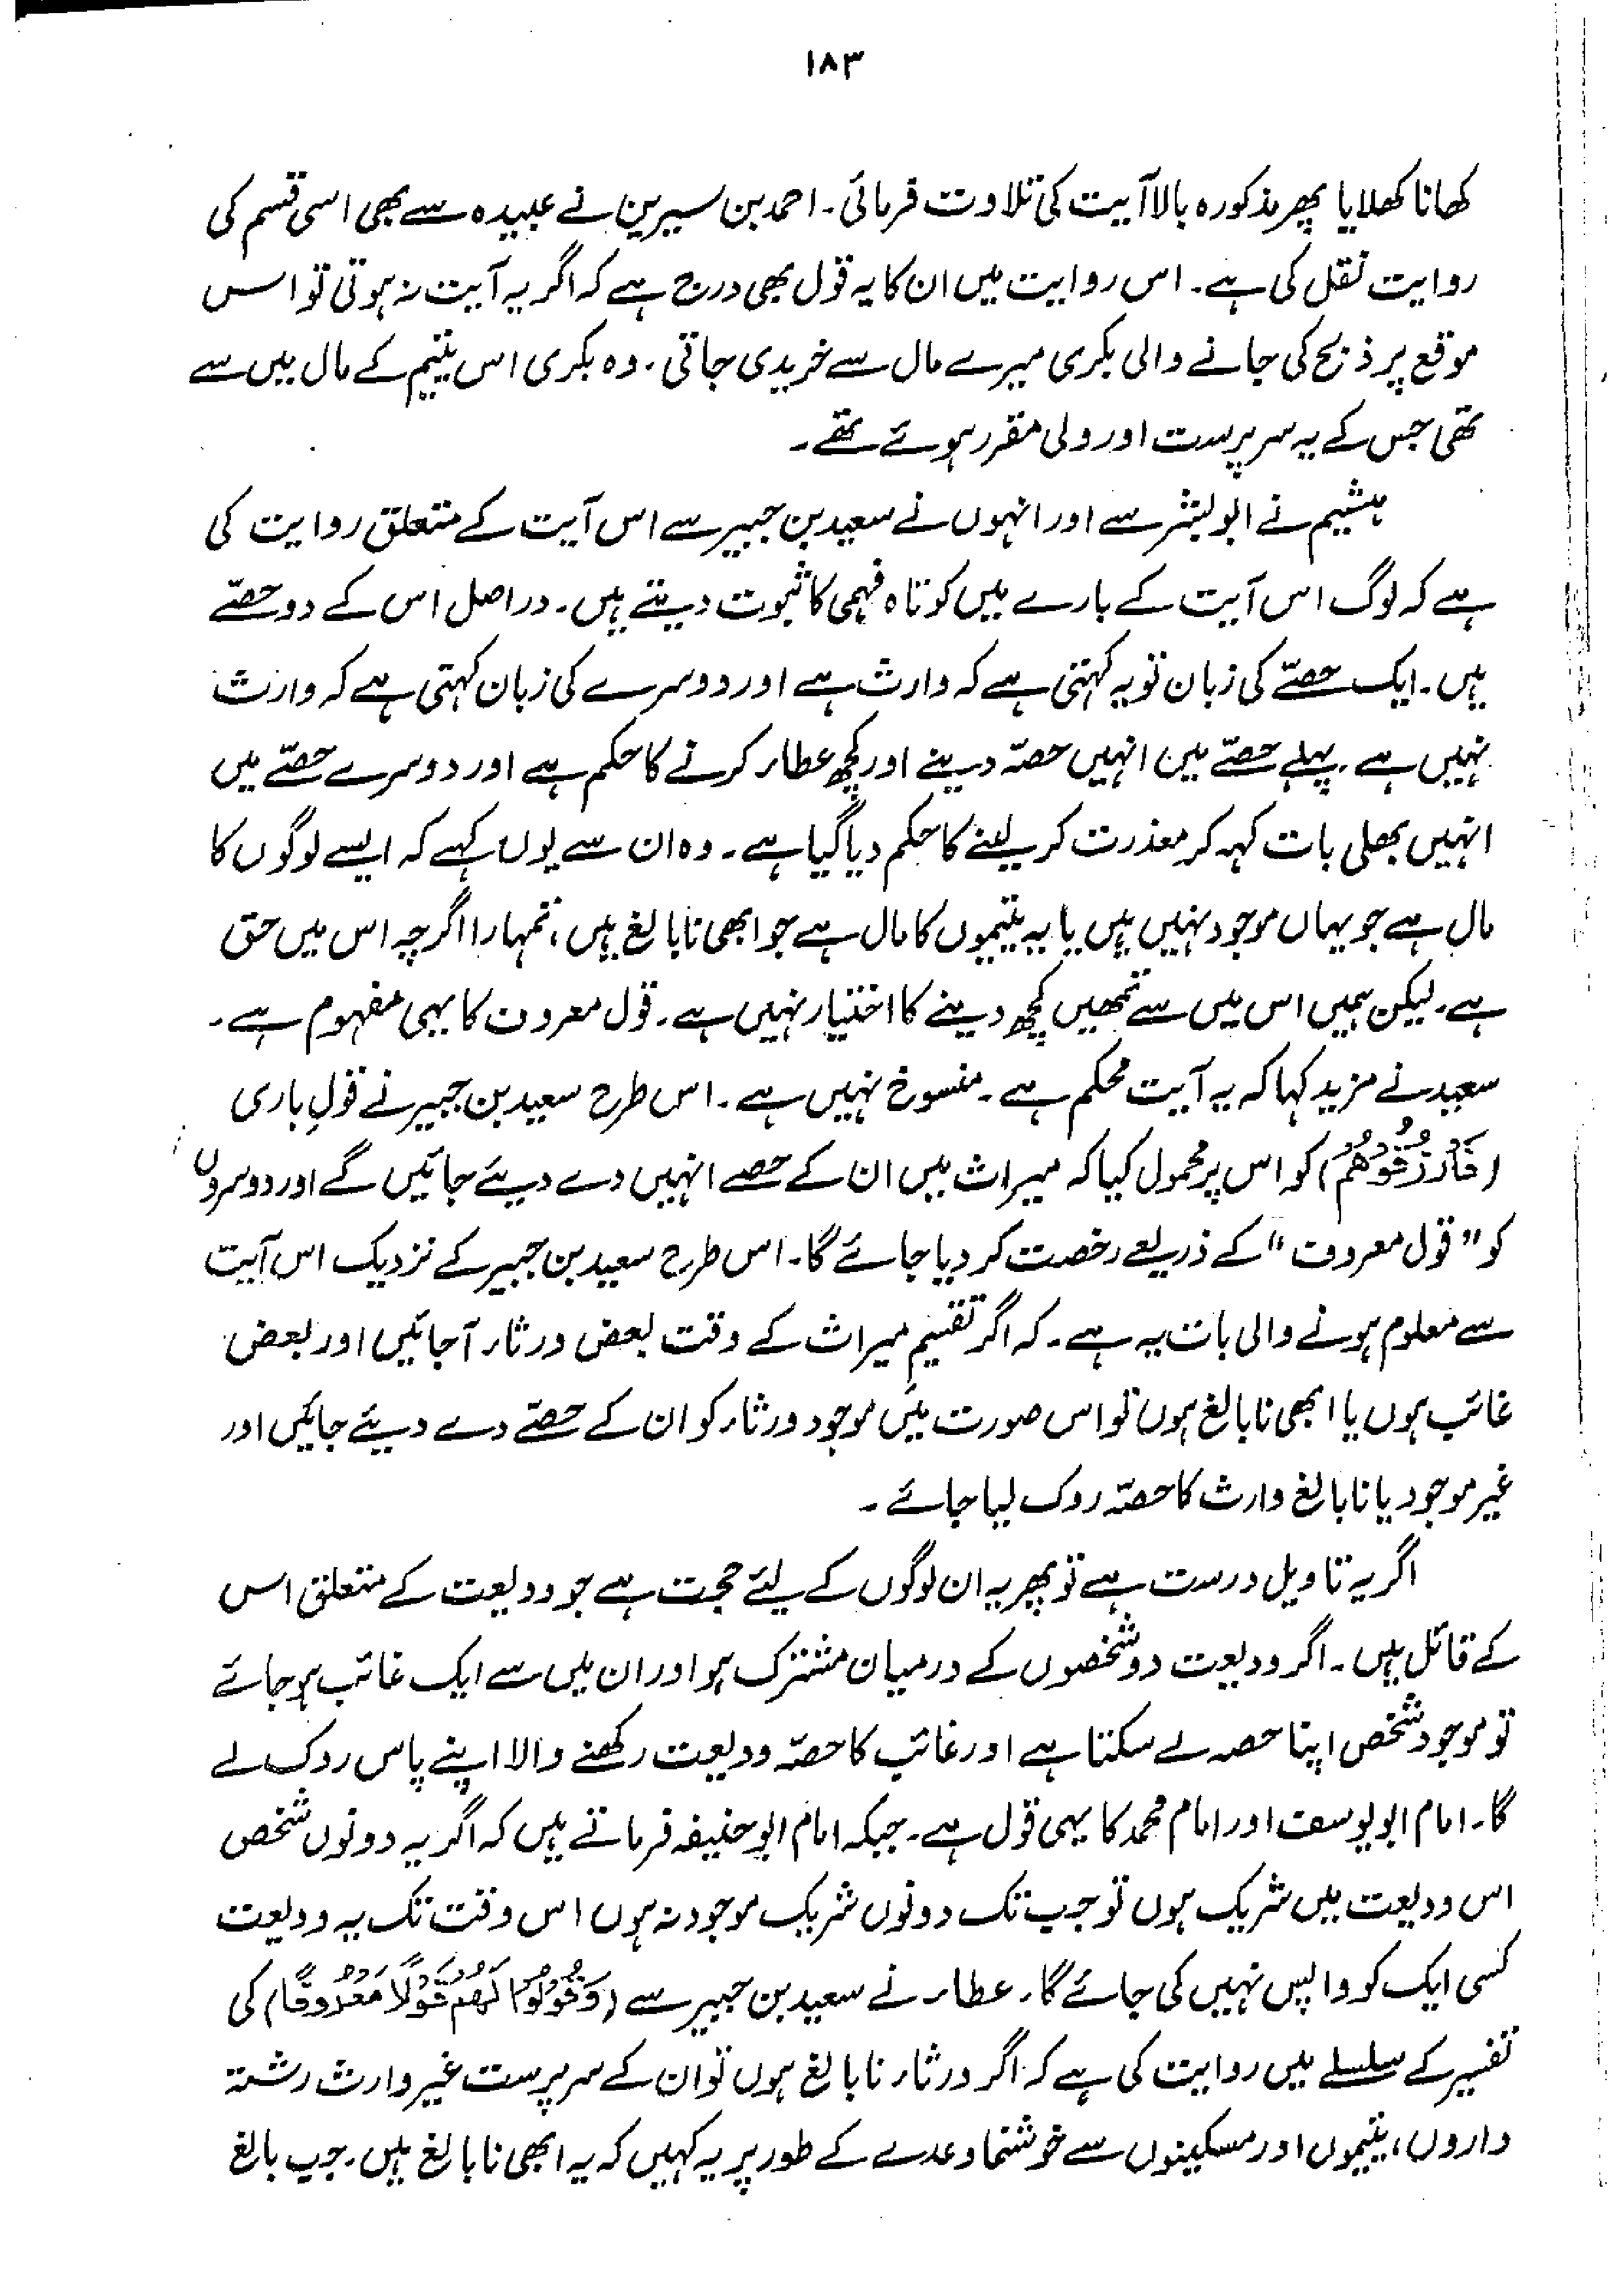 ۱۸۳
کھانا کھلایا پھر مذکورہ بالا آیت کی تلاوت فرمائی۔ احمد بن سیرین نے عبیدہ سے بھی اسی قسم کی
روایت نقل کی ہے۔ اس روایت میں ان کا یہ قول بھی درج ہے کہ اگر یہ آیت نہ ہوتی تو اس
موقع پر ذبح کی جانے والی بکری میرے مال سے خریدی جاتی۔ وہ بکری اس یتیم کے مال میں سے
تھی جس کے یہ سرپرست اور ولی مقرر ہوئے تھے۔
ہشیم نے ابو بشر سے اور انہوں نے سعید بن جبیر سے اس آیت کے متعلق روایت کی
ہے کہ لوگ اس آیت کے بارے میں کوتاہ فہمی کا ثبوت دیتے ہیں۔ دراصل اس کے دو حصّے
ہیں۔ ایک حصّے کی زبان تو یہ کہتی ہے کہ وارث ہے اور دوسرے کی زبان کہتی ہے کہ وارث
نہیں ہے۔ پہلے حصّے میں انہیں حصّہ دینے اور کچھ عطاء کرنے کا حکم ہے اور دوسرے حصّے میں
انہیں بھلی بات کہہ کر معذرت کر لینے کا حکم دیا گیا ہے۔ وہ ان سے یوں کہے کہ ایسے لوگوں کا
مال ہے جو یہاں موجود نہیں ہیں یا یہ یتیموں کا مال ہے جو ابھی نابالغ ہیں، تمہارا اگرچہ اس میں حق
ہے۔ لیکن ہمیں اس میں سے تمھیں کچھ دینے کا اختیار نہیں ہے۔ قول معروف کا یہی مفہوم ہے۔
سعید نے مزید کہا کہ یہ آیت محکم ہے۔ منسوخ نہیں ہے۔ اس طرح سعید بن جبیر نے قولِ باری
(فَارْزُقُوْهُمْ) کو اس پر محمول کیا کہ میراث میں ان کے حصے انہیں دے دیئے جائیں گے اور دوسروں
کو "قول معروف" کے ذریعے رخصت کر دیا جائے گا۔ اس طرح سعید بن جبیر کے نزدیک اس آیت
سے معلوم ہونے والی بات یہ ہے۔ کہ اگر تقسیمِ میراث کے وقت بعض ورثاء آ جائیں اور بعض
غائب ہوں یا ابھی نابالغ ہوں تو اس صورت میں موجود ورثاء کو ان کے حصّے دے دیئے جائیں اور
غیر موجود یا نابالغ وارث کا حصّہ روک لیا جائے۔
اگر یہ تاویل درست ہے تو پھر یہ ان لوگوں کے لیئے حجت ہے جو ودیعت کے متعلق اس
کے قائل ہیں۔ اگر ودیعت دو شخصوں کے درمیان مشترک ہو اور ان میں سے ایک غائب ہو جائے
تو موجود شخص اپنا حصہ لے سکتا ہے اور غائب کا حصّہ ودیعت رکھنے والا اپنے پاس روک لے
گا۔ امام ابو یوسف اور امام محمد کا یہی قول ہے۔ جبکہ امام ابو حنیفہ فرماتے ہیں کہ اگر یہ دونوں شخص
اس ودیعت میں شریک ہوں تو جب تک دونوں شریک موجود نہ ہوں اس وقت تک یہ ودیعت
کسی ایک کو واپس نہیں کی جائے گا۔ عطاء نے سعید بن جبیر سے (وَقُوْلُوْا لَهُمْ قَوْلًا مَعْرُوْفًا) کی
تفسیر کے سلسلے میں روایت کی ہے کہ اگر ورثاء نابالغ ہوں تو ان کے سرپرست غیر وارث رشتہ
داروں، یتیموں اور مسکینوں سے خوشنما وعدے کے طور پر یہ کہیں کہ یہ ابھی نابالغ ہیں۔ جب بالغ